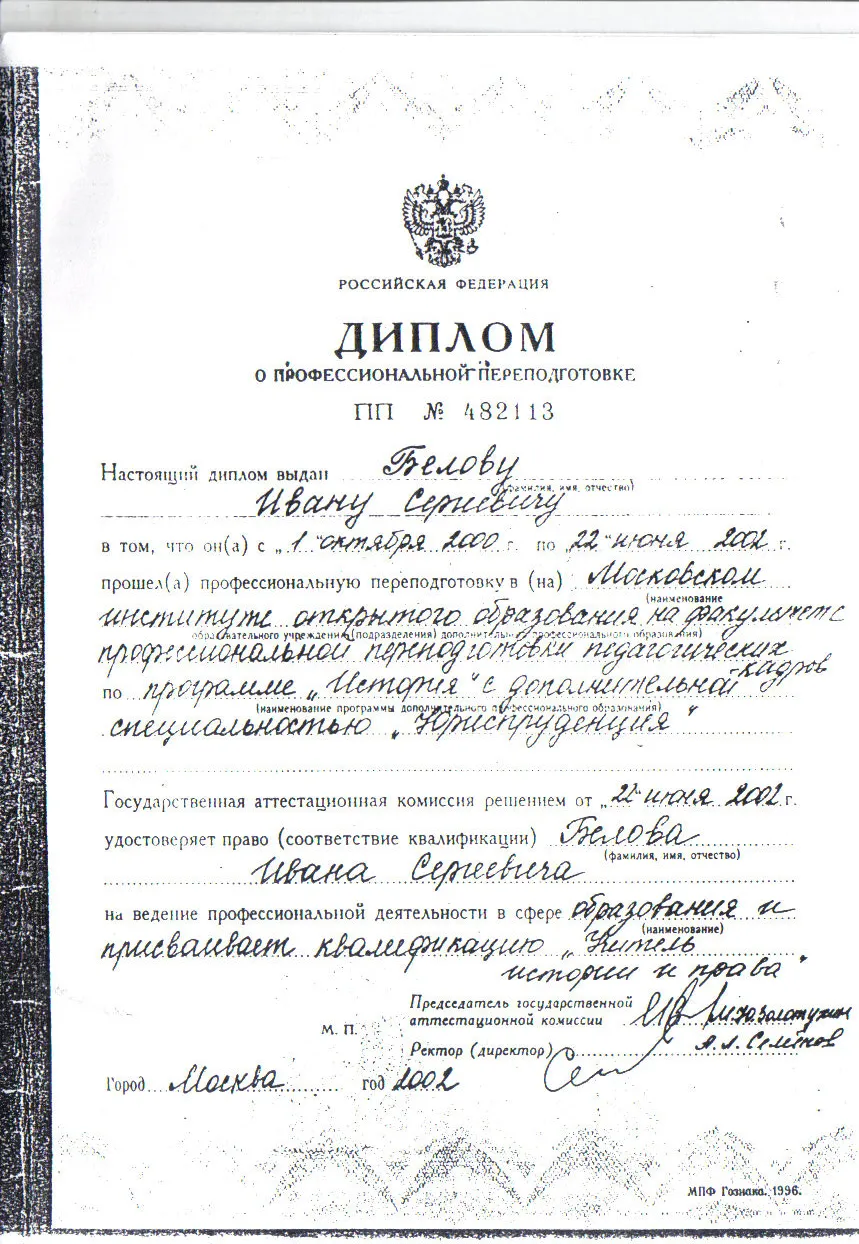 РОССИЙСКАЯ ФЕДЕРАЦИЯ
ДИПЛОМ
О ПРОФЕССИОНАЛЬНОЙ ПЕРЕПОДГОТОВКЕ
ПП № 482113
Настоящий диплом выдан Белову
(фамилия, имя, отчество)
Ивану Сергеевичу
в том, что он(а) с „1" октября 2000 г. по „22" июня 2002 г.
прошел(а) профессиональную переподготовку в (на) Московском
(наименование
институте открытого образования на факультете
образовательного учреждения (подразделения) дополнительного профессионального образования)
профессиональной переподготовки педагогических
кадров
по программе „История" с дополнительной
(наименование программы дополнительного профессионального образования)
специальностью „Юриспруденция"
Государственная аттестационная комиссия решением от „22" июня 2002 г.
удостоверяет право (соответствие квалификации) Белова
(фамилия, имя, отчество)
Ивана Сергеевича
на ведение профессиональной деятельности в сфере образования и
(наименование)
присваивает квалификацию „Учитель
истории и права"
Председатель государственной
аттестационной комиссии Золотухин
М. П.
Ректор (директор) А.Л. Семёнов
Город Москва год 2002
МПФ Гознака. 1996.